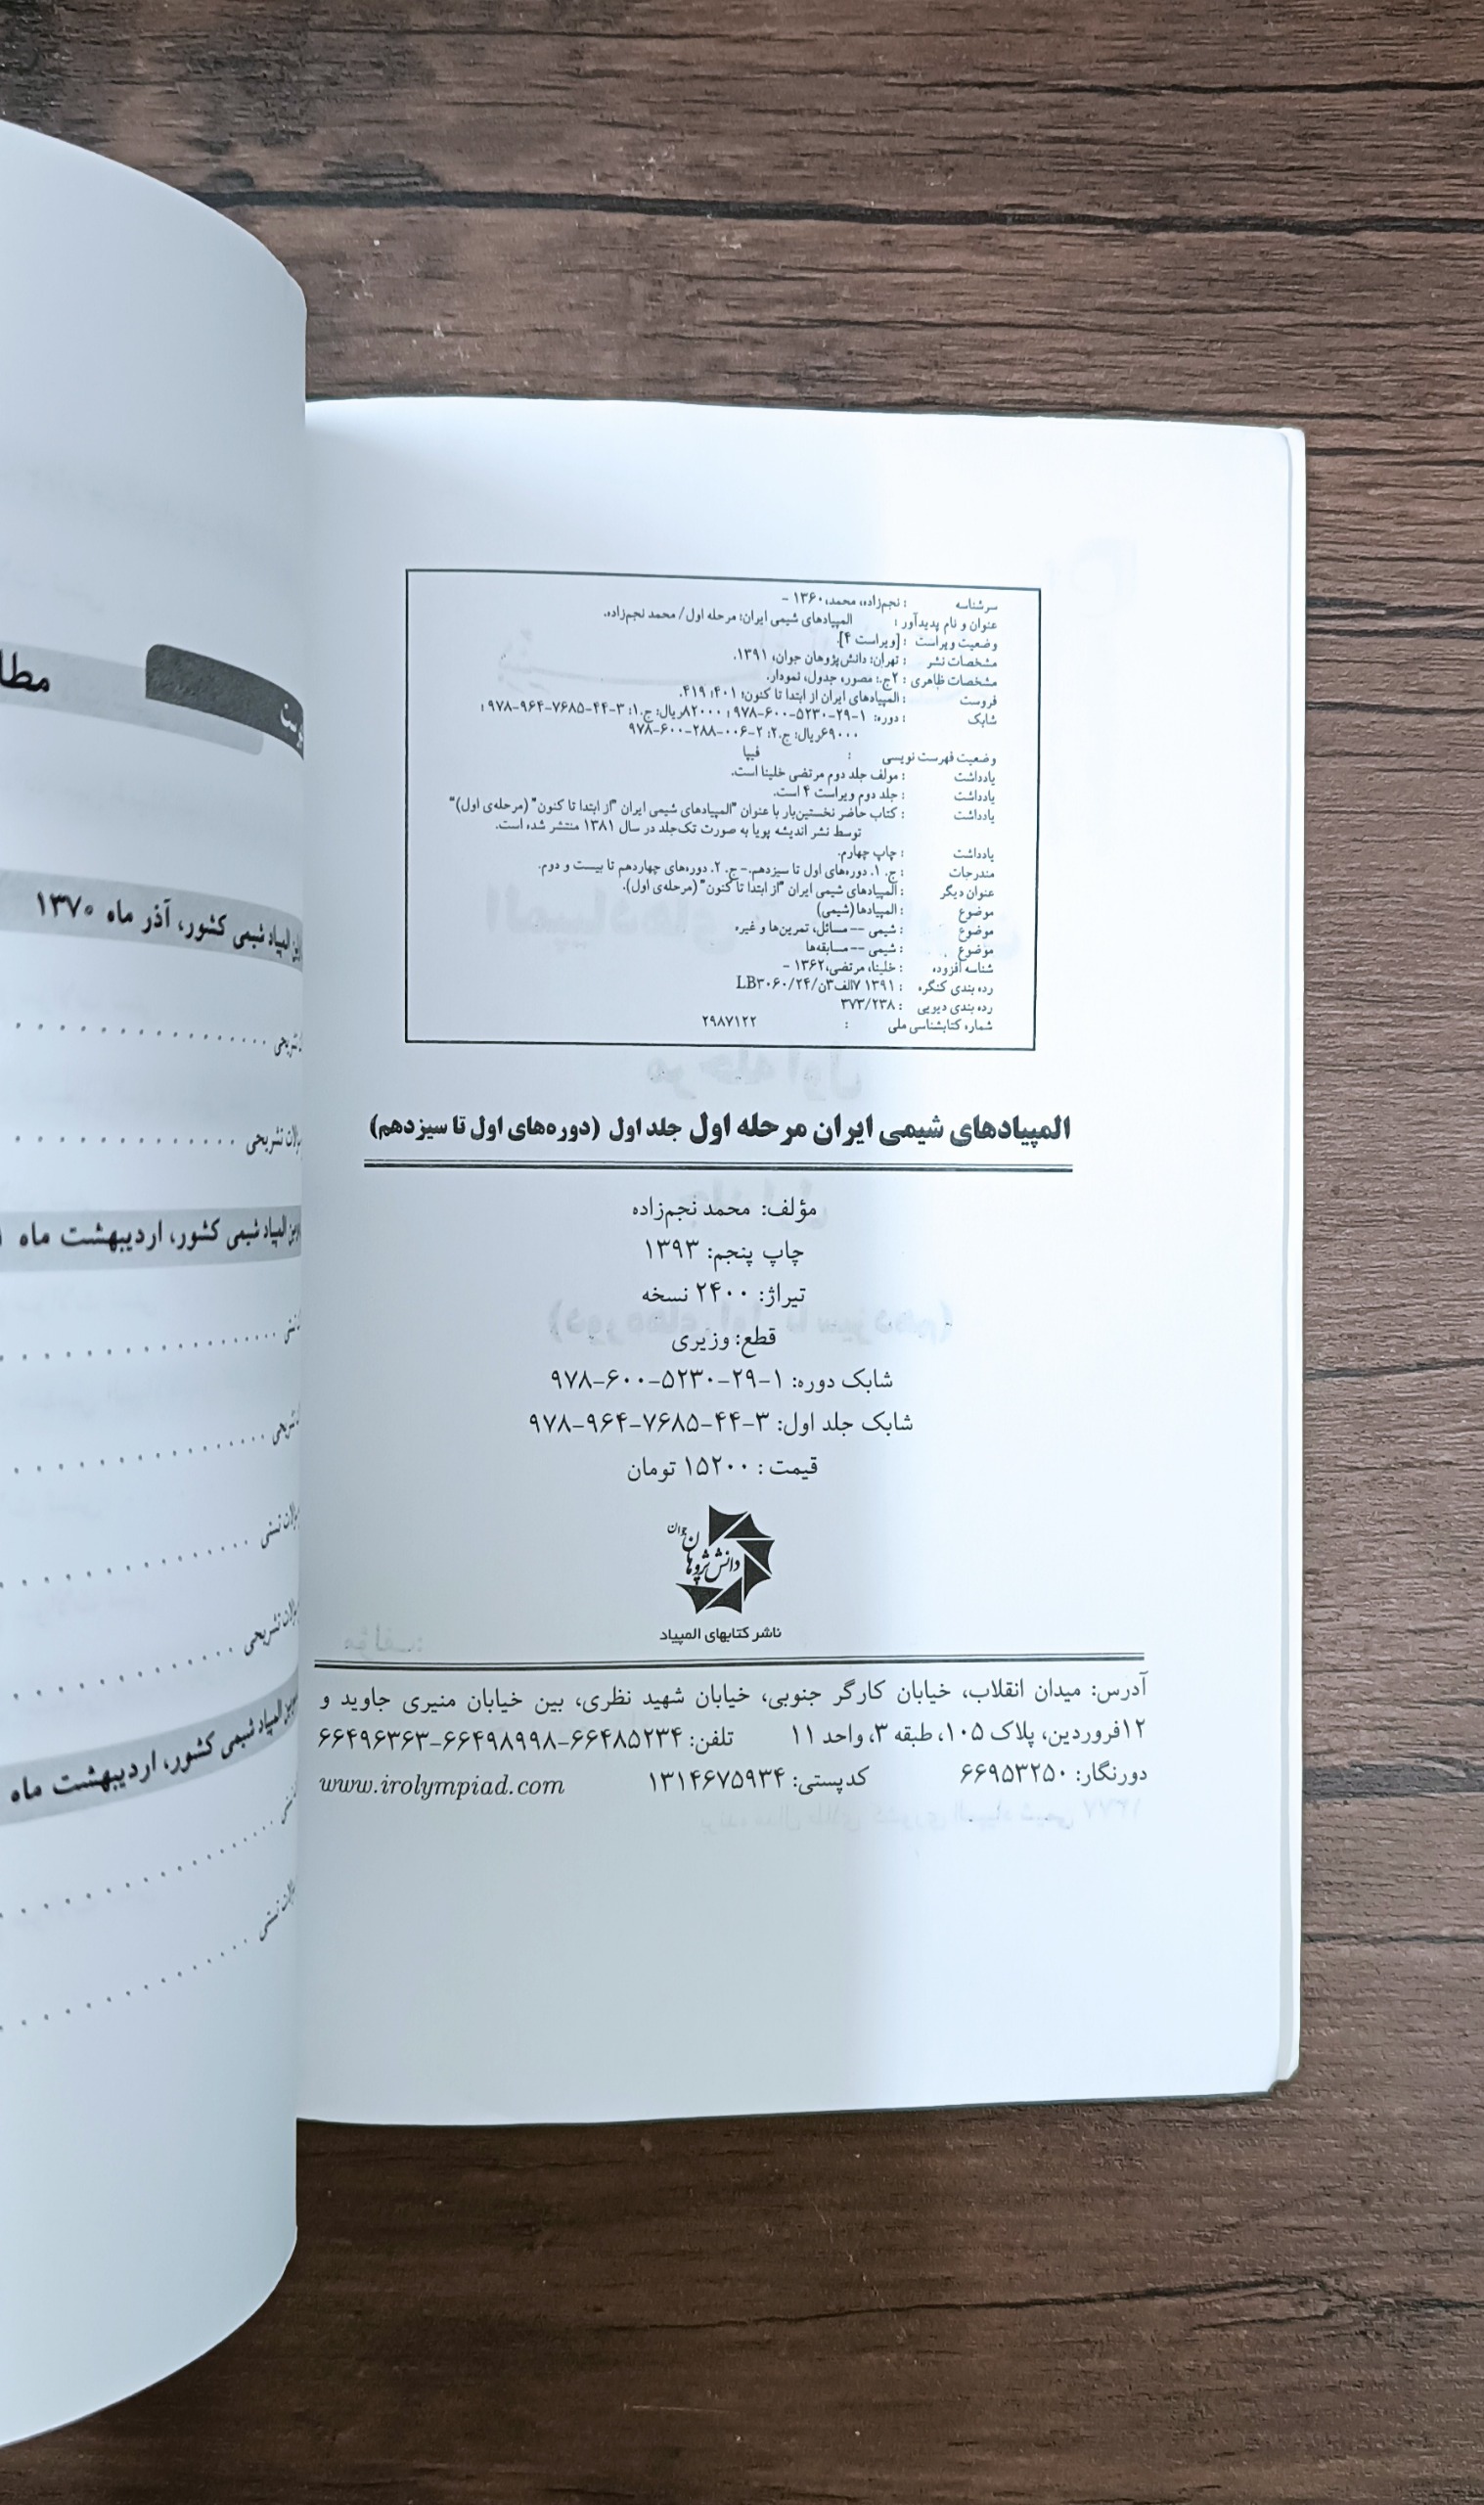 سرشناسه : نجم‌زاده، محمد، ۱۳۶۰ -
عنوان و نام پدیدآور : المپیادهای شیمی ایران: مرحله اول/ محمد نجم‌زاده.
وضعیت ویراست : [ویراست ۴].
مشخصات نشر : تهران: دانش‌پژوهان جوان، ۱۳۹۱.
مشخصات ظاهری : ۲ج.: مصور، جدول، نمودار.
فروست : المپیادهای ایران از ابتدا تا کنون؛ ۴۰۱؛ ۴۱۹.
شابک : دوره: ۱-۲۹-۵۲۳۰-۶۰۰-۹۷۸ ؛ ۸۲۰۰۰ریال: ج.۱: ۳-۴۴-۷۶۸۵-۹۶۴-۹۷۸ ؛
۶۹۰۰۰ریال: ج.۲: ۲-۰۰۶-۲۸۸-۶۰۰-۹۷۸
وضعیت فهرست نویسی : فیپا
یادداشت : مولف جلد دوم مرتضی خلینا است.
یادداشت : جلد دوم ویراست ۴ است.
یادداشت : کتاب حاضر نخستین‌بار با عنوان "المپیادهای شیمی ایران "از ابتدا تا کنون" (مرحله‌ی اول)"
توسط نشر اندیشه پویا به صورت تک‌جلد در سال ۱۳۸۱ منتشر شده است.
یادداشت : چاپ چهارم.
مندرجات : ج. ۱. دوره‌های اول تا سیزدهم.- ج. ۲. دوره‌های چهاردهم تا بیست و دوم.
عنوان دیگر : المپیادهای شیمی ایران "از ابتدا تا کنون" (مرحله‌ی اول).
موضوع : المپیادها (شیمی)
موضوع : شیمی -- مسائل، تمرین‌ها و غیره
موضوع : شیمی -- مسابقه‌ها
شناسه افزوده : خلینا، مرتضی، ۱۳۶۲ -
رده بندی کنگره : ۱۳۹۱ ۷الف۳ن/۲۴/LB۳۰۶۰
رده بندی دیویی : ۳۷۳/۲۳۸
شماره کتابشناسی ملی : ۲۹۸۷۱۲۲
المپیادهای شیمی ایران مرحله اول جلد اول (دوره‌های اول تا سیزدهم)
مؤلف: محمد نجم‌زاده
چاپ پنجم: ۱۳۹۳
تیراژ: ۲۴۰۰ نسخه
قطع: وزیری
شابک دوره: ۱-۲۹-۵۲۳۰-۶۰۰-۹۷۸
شابک جلد اول: ۳-۴۴-۷۶۸۵-۹۶۴-۹۷۸
قیمت : ۱۵۲۰۰ تومان
دانش‌پژوهان جوان
ناشر کتابهای المپیاد
آدرس: میدان انقلاب، خیابان کارگر جنوبی، خیابان شهید نظری، بین خیابان منیری جاوید و
۱۲فروردین، پلاک ۱۰۵، طبقه ۳، واحد ۱۱ تلفن: ۶۶۴۸۵۲۳۴-۶۶۴۹۸۹۹۸-۶۶۴۹۶۳۶۳
دورنگار: ۶۶۹۵۳۲۵۰ کدپستی: ۱۳۱۴۶۷۵۹۳۴ www.irolympiad.com
المپیاد شیمی کشور، آذر ماه ۱۳۷۰
تشریحی
سوالات تشریحی
المپیاد شیمی کشور، اردیبهشت ماه
تشریحی
سوالات تستی
سوالات تشریحی
المپیاد شیمی کشور، اردیبهشت ماه
سوالات تستی